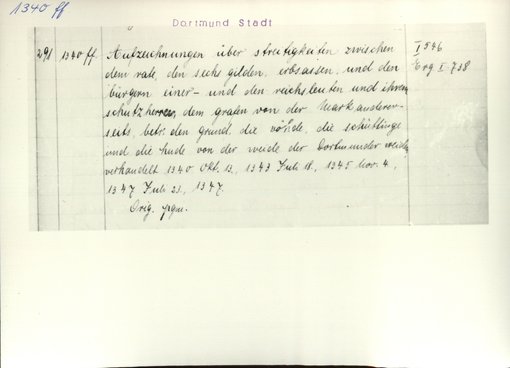 1340 ff
Dortmund Stadt
291 1340 ff Aufzeichnungen über streitigkeiten zwischen I 546
dem rate, den sechs gilden, erbsassen, und den Erg I 738
bürgern einer- und den reichsleuten und ihrem
schutzherren, dem grafen von der Mark anderer-
seits betr. den grund, die vöhde, die schüttinge
und die hude von der weide der Dortmunder weiden,
verhandelt 1340 Okt. 12, 1343 Juli 18, 1345 Nov. 4,
1347 Juli 23, 1347.
Orig. pgm.